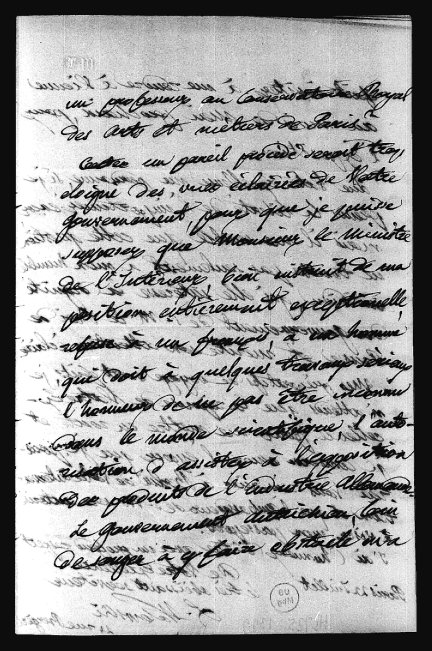 un professeur au Conservatoire Royal
des arts et métiers de Paris.
un pareil procédé serait trop
éloigné des vues éclairées de Notre
gouvernement pour que je puisse
supposer que Monsieur le Ministre
de l'Intérieur, bien instruit de ma
position entièrement exceptionnelle,
refuse à un français, à un homme
qui doit à quelques travaux sérieux
l'honneur de ne pas être inconnu
dans le monde scientifique, l'auto-
risation d'assister à l'exposition
des produits de l'Industrie Allemande.
Le gouvernement autrichien, loin
de songer à y faire obstacle, m'a